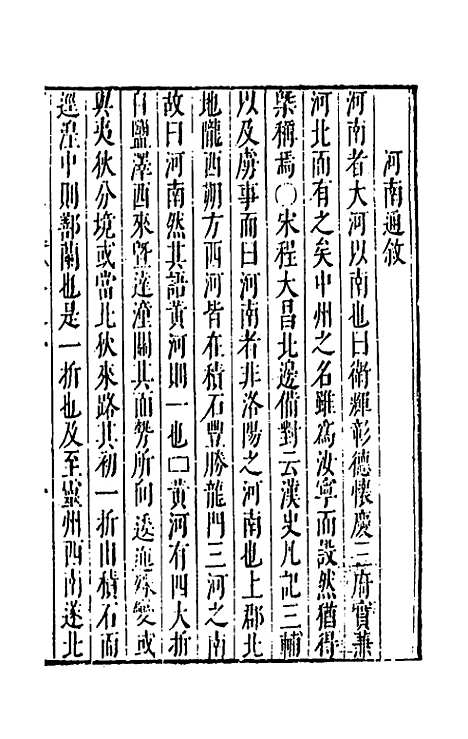 河南通敘
河南者大河以南也曰衛輝彰德懷慶三府實兼
河北而有之矣中州之名雖爲汝寧而設然猶得
槩稱焉○宋程大昌北邊備對云漢史凡記三輔
以及虜事而曰河南者非洛陽之河南也上郡北
地隴西朔方西河皆在積石豐勝龍門三河之南
故曰河南然其語黃河則一也□黃河有四大折
自鹽澤西來曁達潼關其面勢所向逶迤殊變或
與夷狄分境或當北狄來路其初一折由積石而
逕湟中則鄯蘭也是一折也及至靈州西南遂北